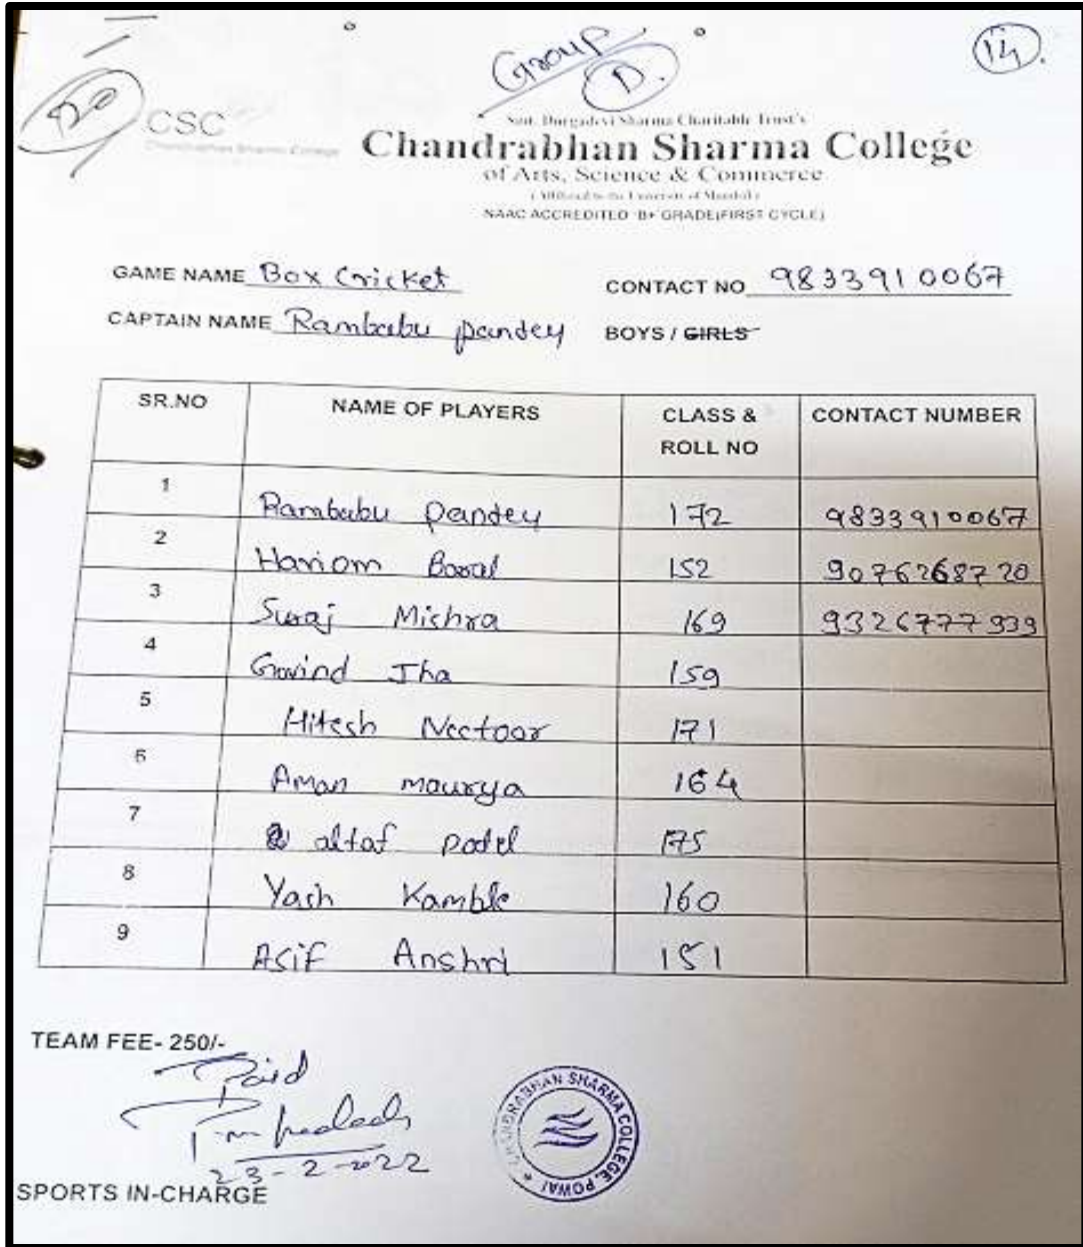 Group D.
14.
20
CSC
Chandrabhan Sharma College
Smt. Durgadevi Sharma Charitable Trust's
Chandrabhan Sharma College
of Arts, Science & Commerce
(Affiliated to the University of Mumbai)
NAAC ACCREDITED 'B+' GRADE(FIRST CYCLE)
GAME NAME Box Cricket CONTACT NO 9833910067
CAPTAIN NAME Rambabu pandey BOYS / GIRLS
SR.NO NAME OF PLAYERS CLASS & ROLL NO CONTACT NUMBER
1 Rambabu Pandey 172 9833910067
2 Hariom Baral 152 9076268720
3 Suraj Mishra 169 9326777939
4 Govind Jha 159
5 Hitesh Neetoor 171
6 Aman maurya 164
7 altaf patel 175
8 Yash Kamble 160
9 Asif Anshri 151
TEAM FEE- 250/-
Paid
23-2-2022
SPORTS IN-CHARGE
CHANDRABHAN SHARMA COLLEGE, POWAI